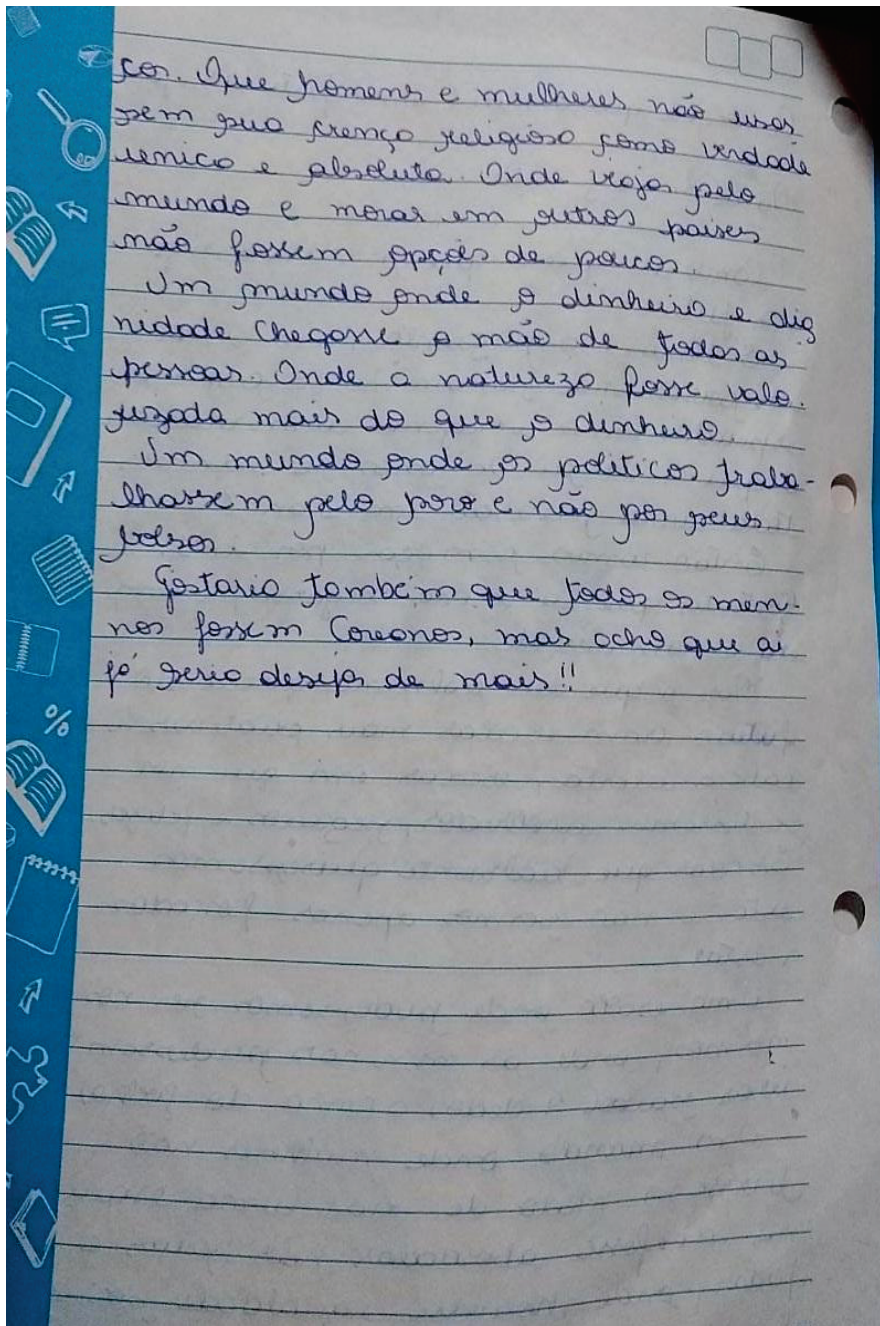 ços. Que homens e mulheres não usas
sem sua crença religiosa como verdade
unica e absoluta. Onde viajar pelo
mundo e morar em outros paises
não fossem opções de poucos.
Um mundo onde o dinheiro e dig
nidade chegasse a mão de todas as
pessoas. Onde a natureza fosse valo.
rizada mais do que o dinheiro.
Um mundo onde os politicos traba-
lhassem pelo povo e não por seus
bolsos.
Gostaria também que todos os meni-
nos fossem Coreanos, mas acho que ai
já seria desejar de mais!!
%